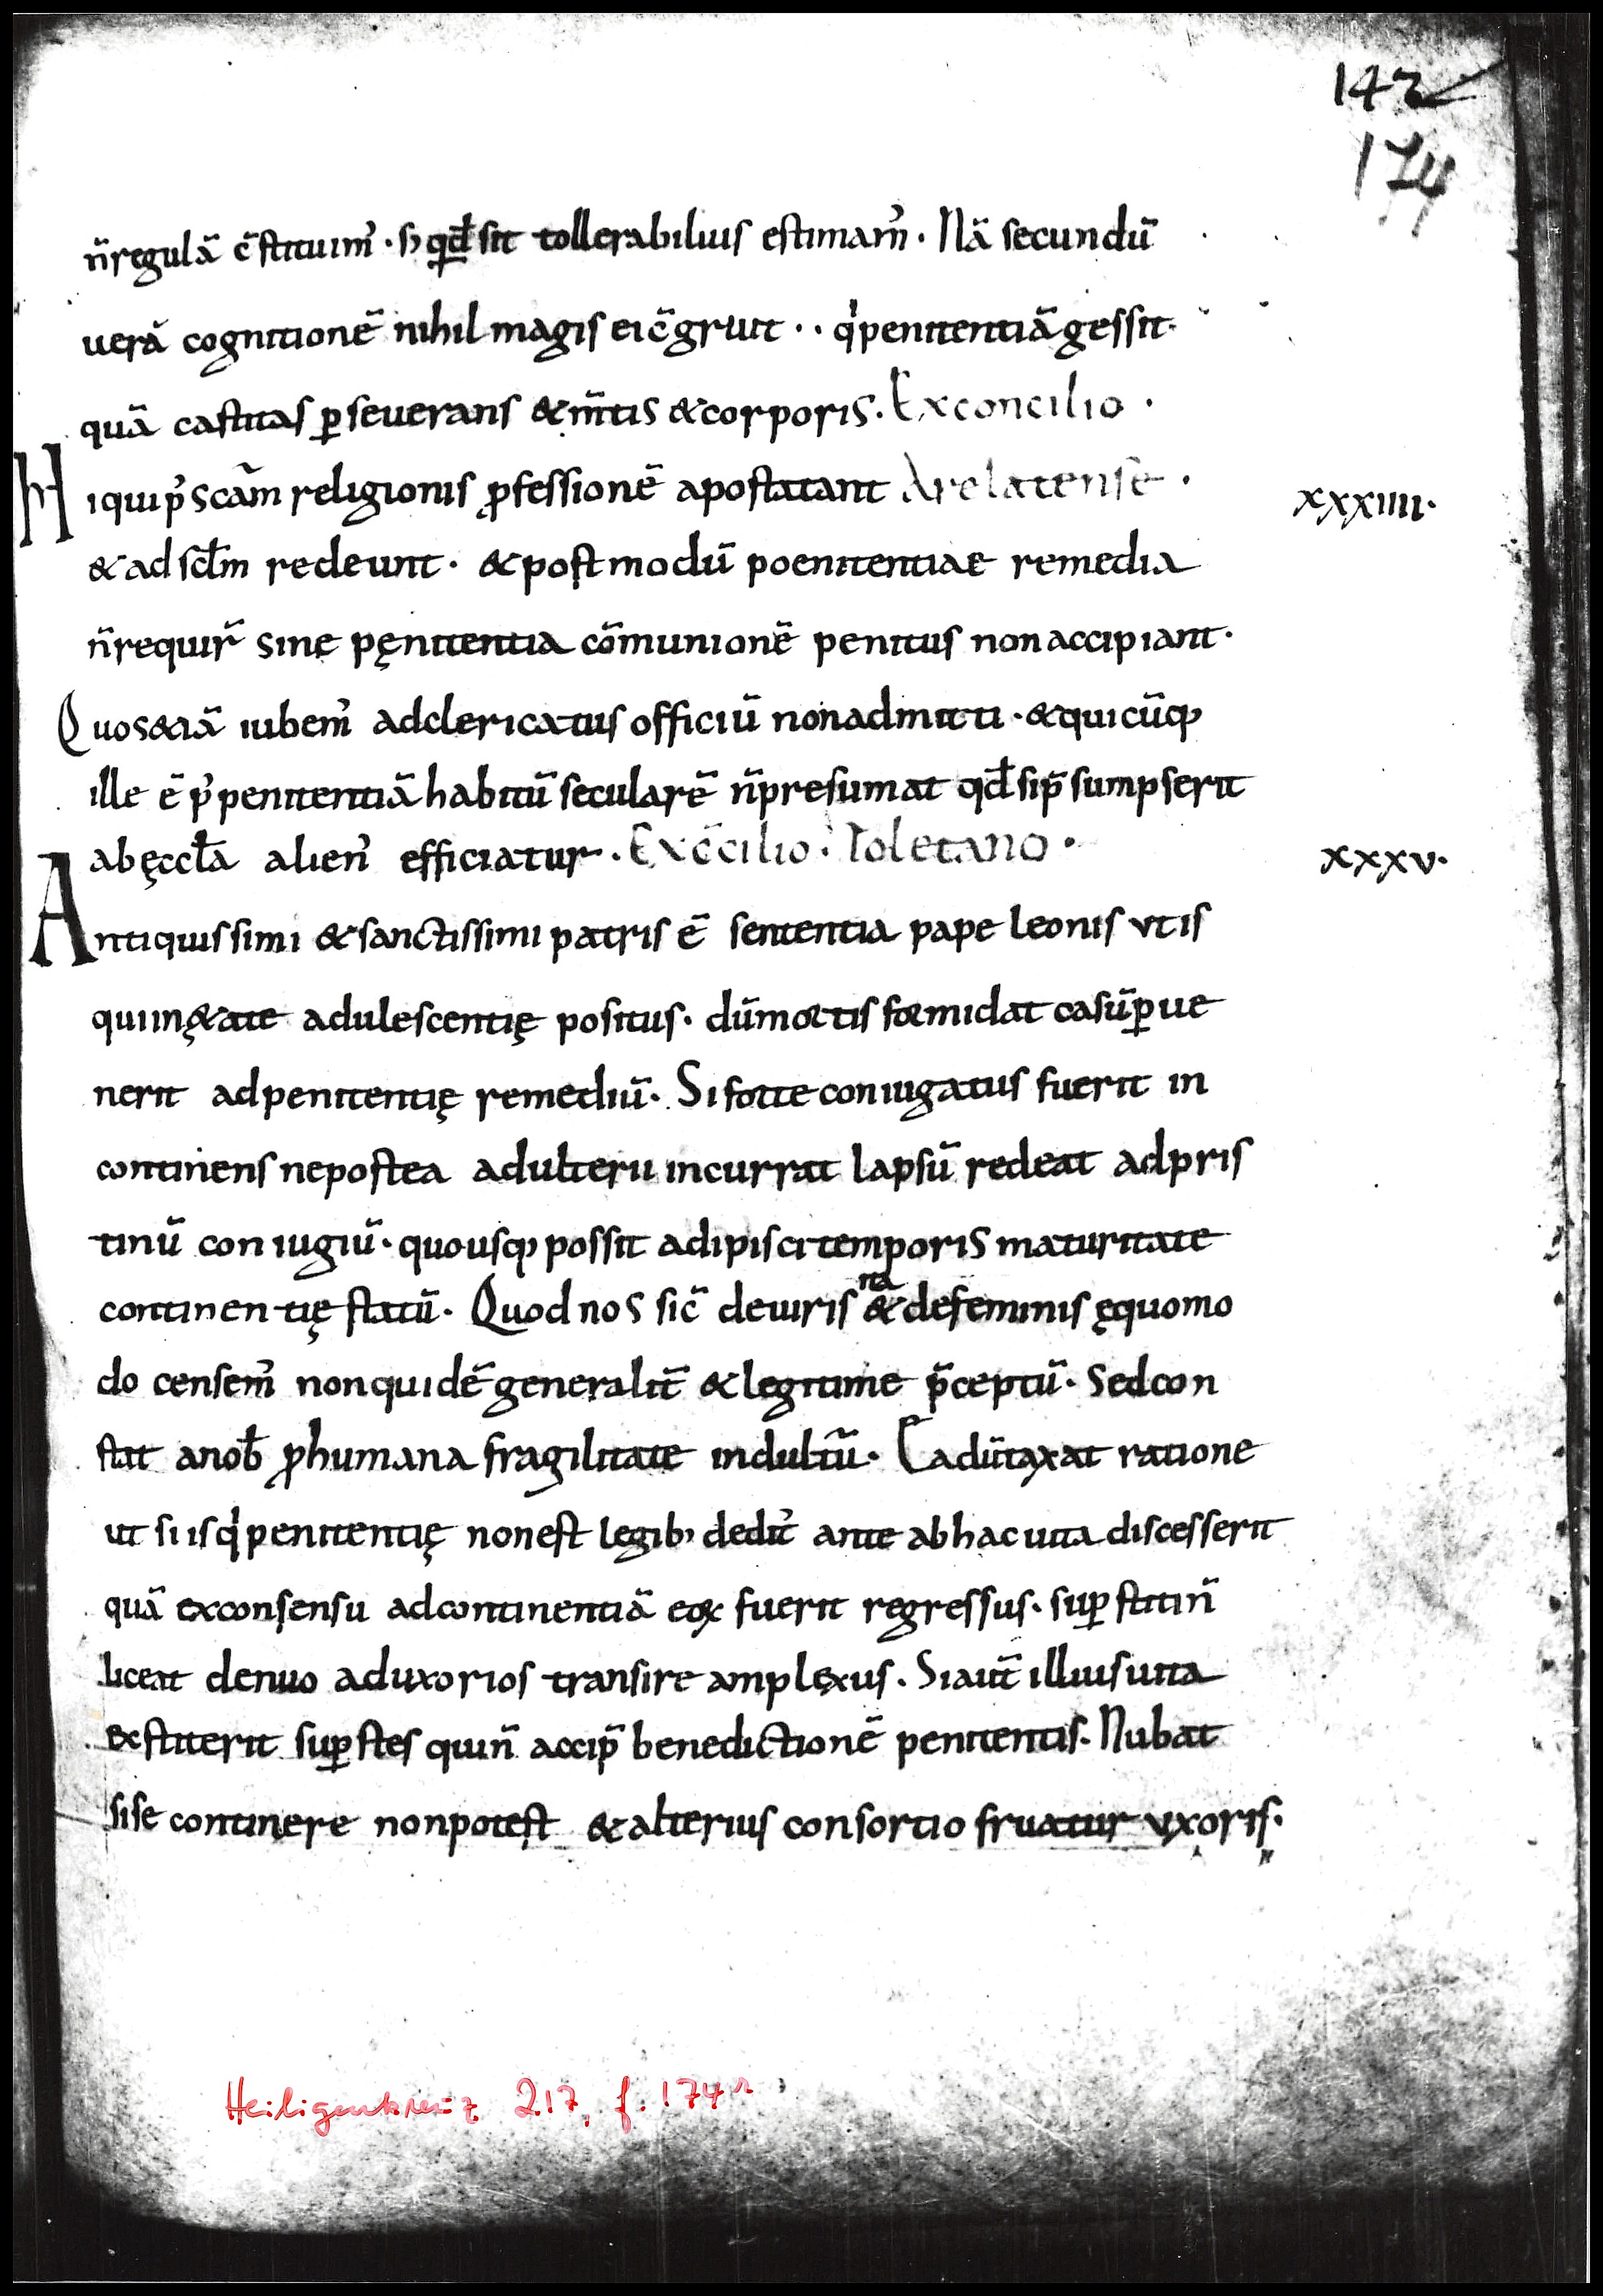 142
174
n̄regulā c̄stituim᾽ · sꝫ qd̄ sit tollerabilius estimam᾽ · Nā secundū
uerā cognitionē nihil magis ei c̄gruit · · qͥ penitentiā gessit ·
quā castitas ꝑseuerans & m̄tis & corporis. Ex concilio ·
Hi qui p᾽ scām religionis ꝓfessionē apostatant Arelatense ·
xxxiiii·
& ad scl̄m redeunt · & postmodū poenitentiae remedia
n̄ requir̄ sine pęnitentia cōmunionē penitus non accipiant ·
Quos & iā iubem᾽ ad clericatus officiū non admitti · & quicūqꝫ
ille ē p᾽ penitentiā habitū secularē n̄ presumat qd̄ si p̄sumpserit
ab ęccl̄a alien᾽ efficiatur · Ex c̄cilio · Toletano ·
xxxv·
Antiquissimi & sanctissimi patris ē sententia pape leonis vt is
qui in ę&ate adulescentię positus · dū mortis formidat casū ꝑue
nerit ad penitentię remediū · Si forte coniugatus fuerit in
continens ne postea adulterii incurrat lapsū redeat ad pris
tinū coniugiū · quousqꝫ possit adipisci temporis maturitate
continentię statū · Quod nos sic̄ de uiris ita & de feminis ęquomo
do censem᾽ non quidē generalit̄ & legitime p̄ceptū · Sed con
stit a nob̄ ꝓ humana fragilitate indultū · Ea dūtaxat ratione
ut si is qͥ penitentię non est legibꝫ dedit᾽ ante ab hac uita discesserit
quā ex consensu ad continentiā eoꝝ fuerit regressus · suꝑstiti n̄
liceat denuo ad uxorios transire amplexus · Si aut̄ illius uita
exstiterit suꝑstes qui n̄ accip̄ benedictionē penitentis · Nubat
si se continere non potest & alterius consortio fruatur vxoris ·
Heiligenkreuz 217, f. 174r